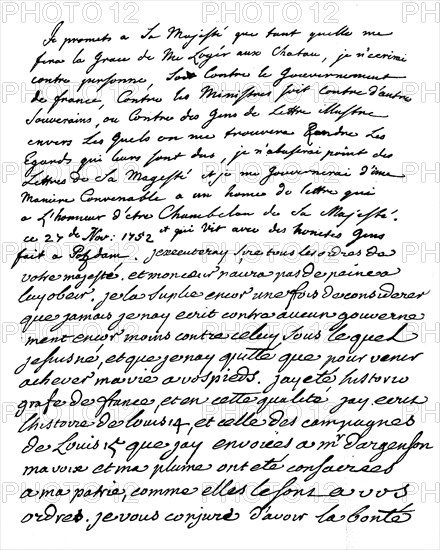 Je promets a Sa Majesté que tant quelle me
fera la Grace de Me Logér aux Chatau, je n'ecrirai
contre personné, Soit Contre le Gouvernement
de france, Contre les Ministres soit contre d'autre
Souverains, ou Contre des Gens de Lettre Illustre
envers Les Quels on me trouvera Rendre Les
Egards qui leurs sont dus, je n'abuserai point des
Lettres de Sa Magesté et je me Gouvernerai d'une
Maniere Convenable a un home de lettre qui
a L'honneur d'étre Chambelan de Sa Majesté.
ce 27 de Nov: 1752 et qui vit avec des honetes Gens
fait a Potzdam. jexecuteray sire tous les ordres de
votre majesté. et mon coeur naura pas de peine a
luy obeir. je la suplie encor une fois de considerer
que jamais je nay ecrit contre aucun gouverne
ment encor moins contre celuy sous le quel
je suis né, et que je nay quitté que pour venir
achever ma vie a vos pieds. jay eté historio
grafe de france, et en cette qualité jay ecrit
lhistoire de louis 14, et celle des campagnes
de Louis 15 que jay envoiées a mr dargenson
ma voix et ma plume ont eté consacrées
a ma patrie, comme elles le sont a vos
ordres. je vous conjure d'avoir la bonté
PHOTO 12